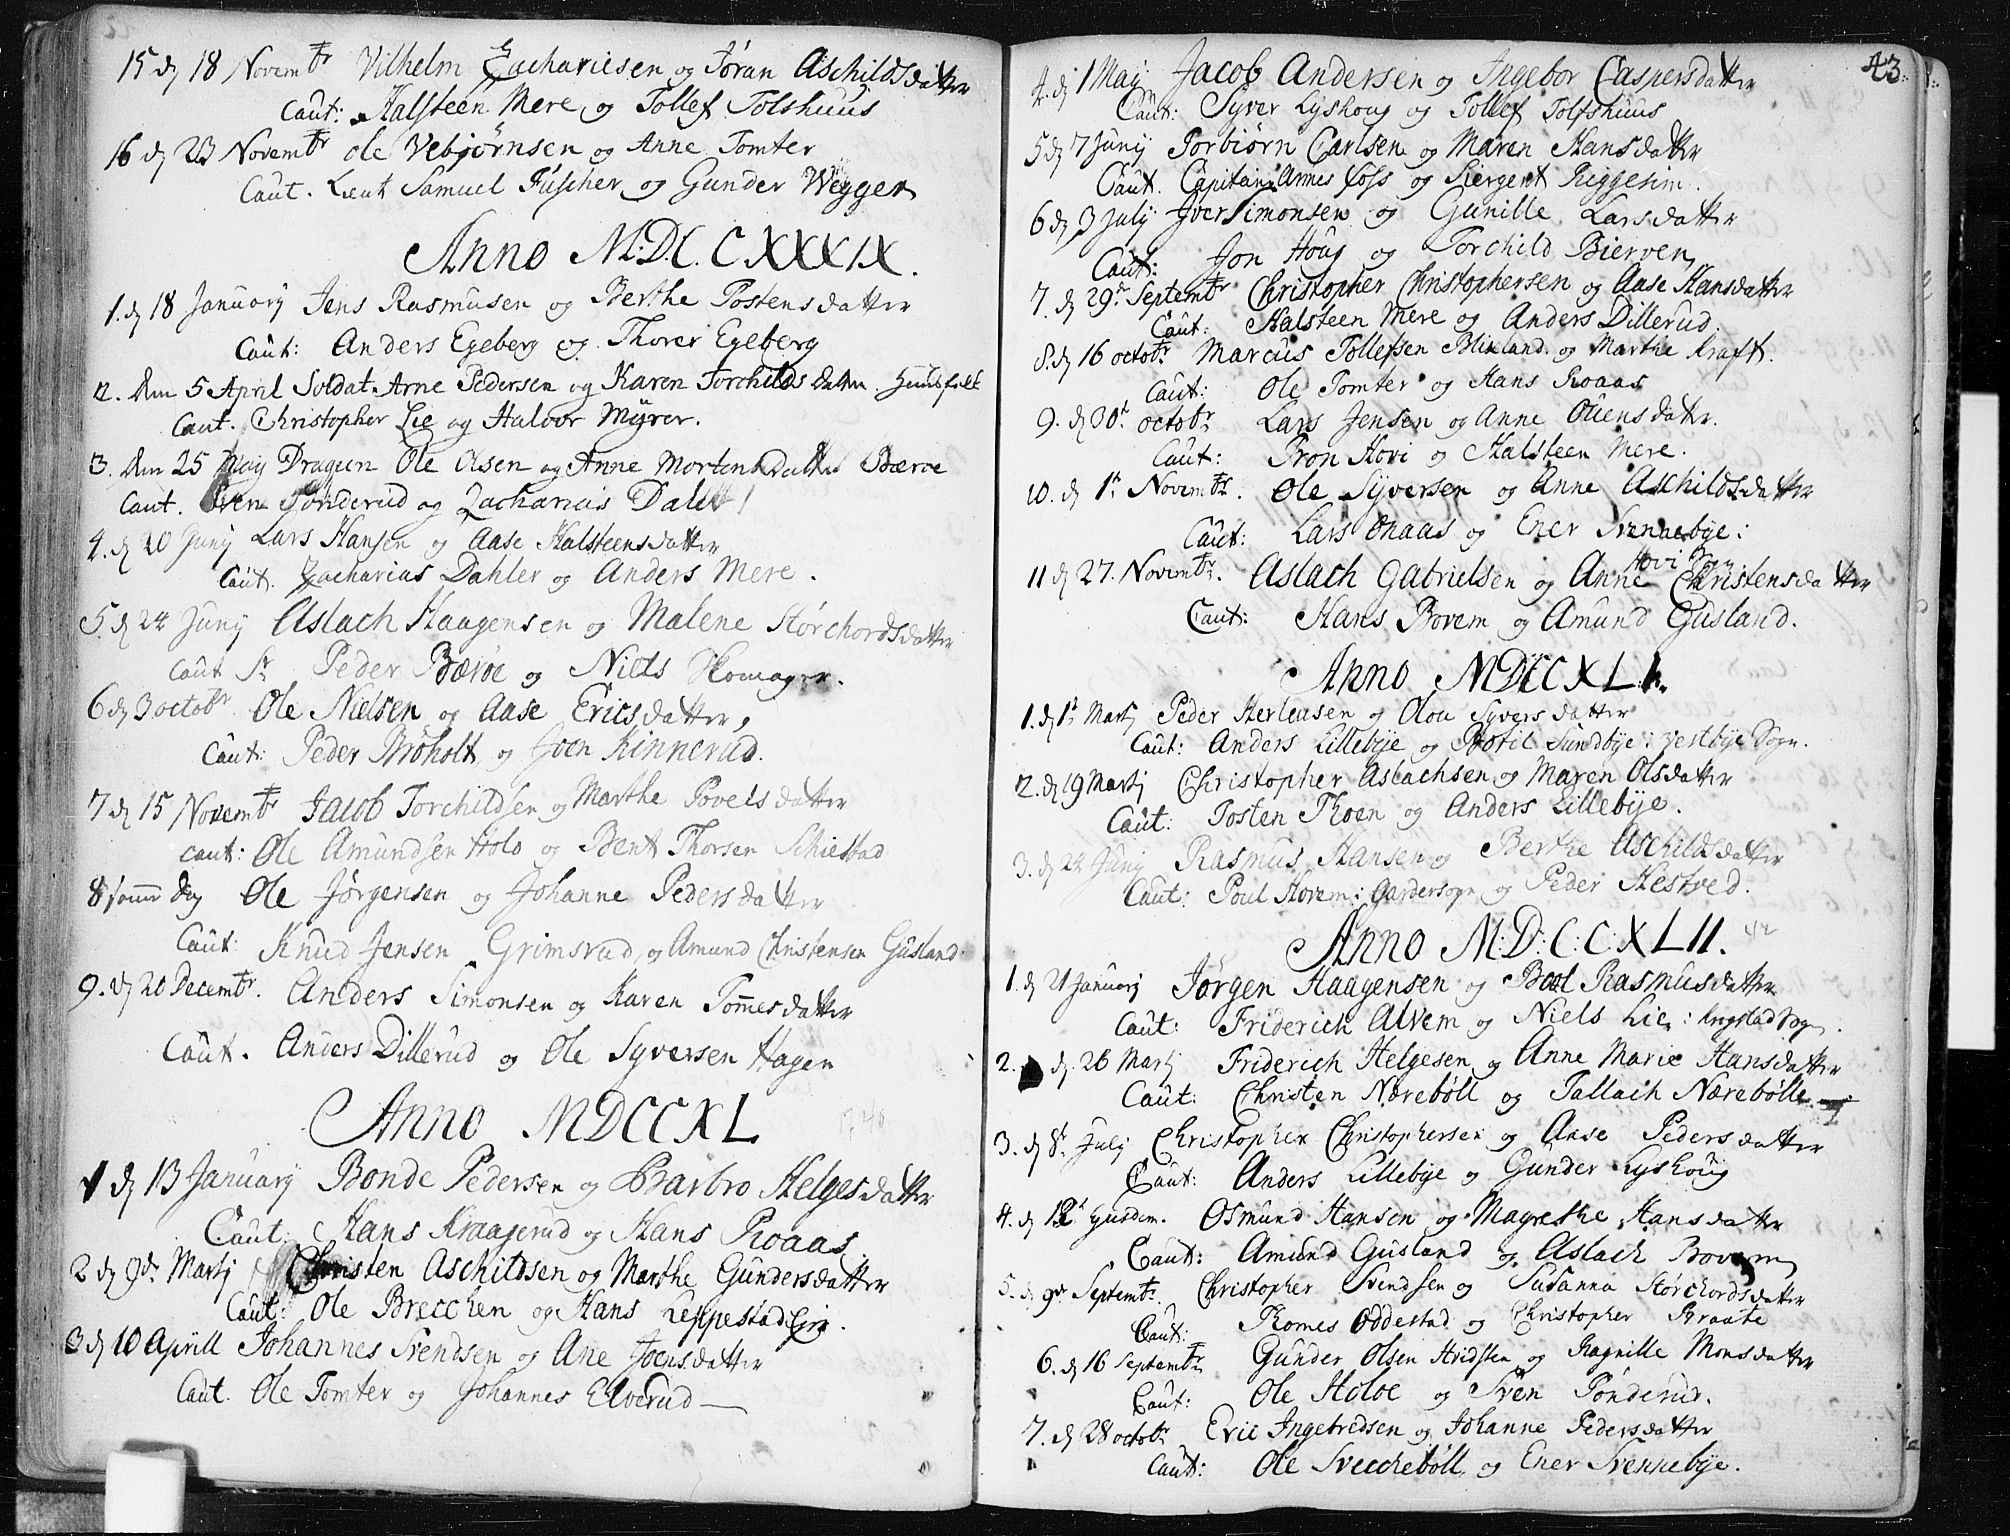 15 dj 18 Novembr Vilhelm Zachariesen og Jöran Aschildsdatter
Caut: Halsteen Mere og Tollef Tolshuus
16 dj 23 Novembr Ole Vebjørnsen og Anne Tomter
Caut. Lieut Samuel Füscher og Gunder Wegger
Anno M.D.C.CXXXIX.
1. dj 18 Januarij Jens Rasmusen og Berthe Postensdatter
Caut: Anders Egeberg og Thorer Egeberg
2. Den 5 April Soldat Arne Pedersen og Karen Torchilds datter.
Caut. Christopher Lie og Halvor Mÿrer.
3. Den 25 Maij Dragun Ole Olsen og Anne Mortensdatter Bærøe
Caut. Sven Tönderud og Zacharias Dahl
4. dj 20 Junij Lars Hansen og Aase Halsteensdatter
Caut. Zacharias Dahler og Anders Mere.
5. dj 24 Junij Aslach Haagensen og Malene Störchordsdatter
Caut Sr Peder Bærøe og Niels Homager.
6 dj 3 octobr Ole Nielsen og Aase Ericsdatter,
Caut: Peder Bröholt og Joen Kinnerud.
7 dj 15 Novembr Jacob Torchildsen og Marthe Povelsdatter
Caut: Ole Amundsen Holo og Bent Thorsen Schiestad
8 samme Dag Ole Jörgensen og Johanne Pedersdatter
Caut: Knud Jensen Grimsrud, og Amund Christensen Gusland
9. dj 20 Decembr. Anders Simonsen og Karen Tom̄esdatter
Caut. Anders Dillerud og Ole Syversen Hagen
Anno MDCCXL 1740
1 dj 13 Januarij Bonde Pedersen og Barbro Helgesdatter
Caut. Hans Kraagerud og Hans Roaas.
2 dj 9de Martj Christen Aschildsen og Marthe Gundersdatter
Caut: Ole Brecchen og Hans Leppestad Eie.
3 dj 10 Aprill Johannes Svendsen og Ane Joensdatter
Caut. Ole Tomter og Johannes Elverud
43.
4. dj 1 Maij Jacob Andersen og Ingebor Caspersdatter
Caut: Syver Lyshoug og Tollef Tolfshuus
5 dj 7 Junij Torbiörn Carlsen og Maren Hansdatter
Caut. Capitain Annes Coss og Siergent Riggesim.
6 dj 3 Julij Iver Simonsen og Gunille Larsdatter
Caut: Jon Houg og Torchild Bierven
7. dj 29de Septembr Christopher Christophersen og Aase Hansdatter
Caut: Halsteen Mere og Anders Dillerud.
8. dj 16 octobr Marcus Tollefsen Blixland og Marthe Kraft.
Caut: Ole Tomter og Hans Roaas
9. dj 30t octobr Lars Jensen og Anne Oliensdatr.
Caut: Tron Hovi og Halsteen Mere.
10. dj 1t Novembr. Ole Syversen og Anne Aschildsdatter
Caut: Lars Onaas og Ener Svennebye:
Hovi Sogn
11 dj 27. Novembr. Aslach Gabrielsen og Anne Christensdatter
Caut: Hans Bovem og Amund Gusland.
Anno MDCCXLI.
1. dj 1t Martj Peder Herleusen og Olou Syversdatter
Caut: Anders Lillebye og Botil Sundbye: Vestbye Sogn.
2. dj 19 Martj Christopher Aslachsen og Maren Olsdatter
Caut: Tosten Moen og Anders Lillebye.
3. dj 24 Junij Rasmus Hansen og Berthe Aschildsdatter
Caut: Poul Hovem: Gardersogn og Peder Hestved.
Anno M:D:C:C:XLII. 42
1. dj 21 Januarij Jörgen Haagensen og Boel Rasmusdatter
Caut: Friderich Alvem og Niels Lie: Krogstad Sogn.
2. dj. 26 Martj Friderich Helgesen og Anne Marie Hansdatter
Caut: Christen Næreböll og Tallach Nærebölle
3. dj 8t Julij Christopher Christophersen og Aase Pedersdatter
Caut: Anders Lillebye og Gunder Lyshoug
4. dj 12t Osmund Hansen og Magrethe Hansdatter
Caut: Amund Gusland og Aslach Bovem
5. dj 9de Septembr. Christopher Svendsen og Susanna Störchordsdatter
Caut: Thomes Oddestad og Christopher Braate
6. dj 16 Septembr Gunder Olsen Hvidsten og Ragnille Monsdatter
Caut: Ole Holoe og Sven Tönderud.
7. dj 28 octobr Eric Ingebredsen og Johanne Pedersdatter
Caut: Ole Svecheböll og Ener Svennebye.